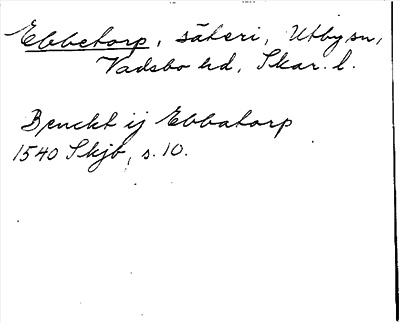 Ebbetorp, säteri, Utby sn,
Vadsbo hd, Skar. l.
Benckt ij Ebbatorp
1540 Skjb, s. 10.